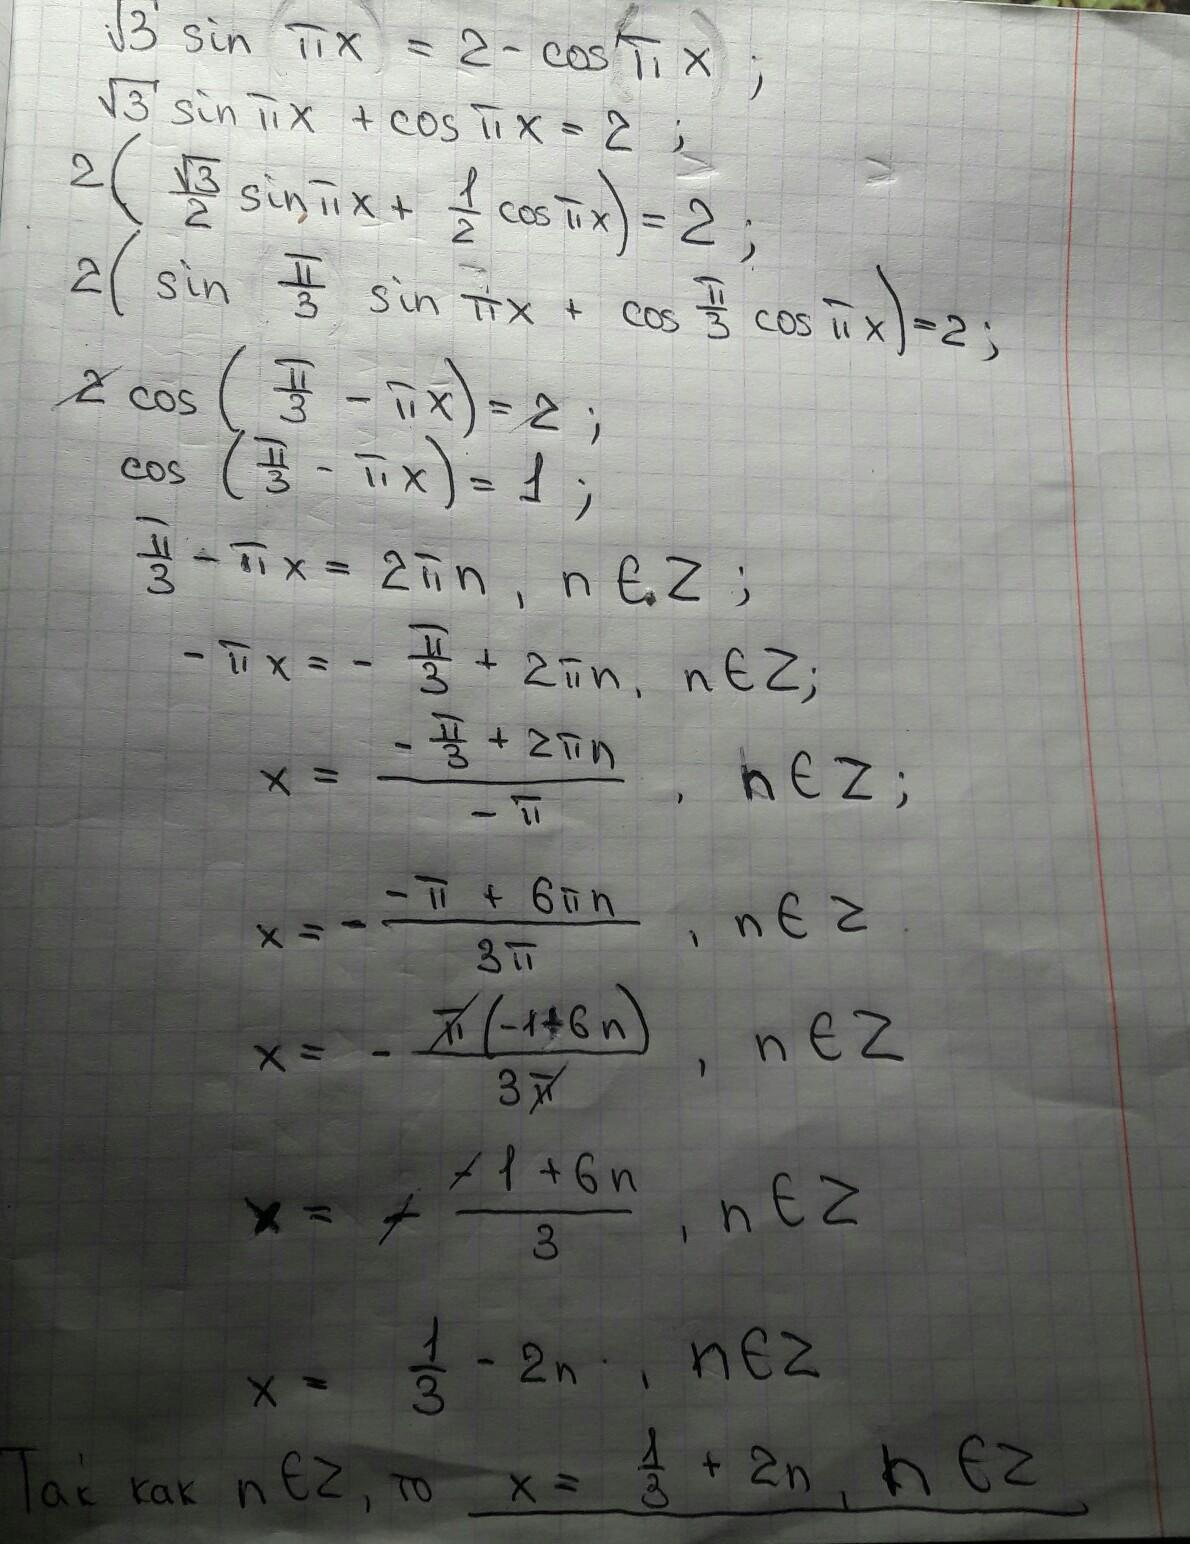 √3 sin πx = 2 - cos πx ;
√3 sin πx + cos πx = 2 ;
2( √3/2 sin πx + 1/2 cos πx) = 2 ;
2( sin π/3 sin πx + cos π/3 cos πx) = 2 ;
2 cos ( π/3 - πx) = 2 ;
cos ( π/3 - πx) = 1 ;
π/3 - πx = 2πn , n ∈ Z ;
-πx = - π/3 + 2πn, n ∈ Z;
x = (- π/3 + 2πn)/(-π) , n ∈ Z ;
x = - (-π + 6πn)/(3π) , n ∈ Z
x = - π(-1+6n)/(3π) , n ∈ Z
x = - (-1 + 6n)/3 , n ∈ Z
x = 1/3 - 2n , n ∈ Z
Так как n ∈ Z, то x = 1/3 + 2n, n ∈ Z